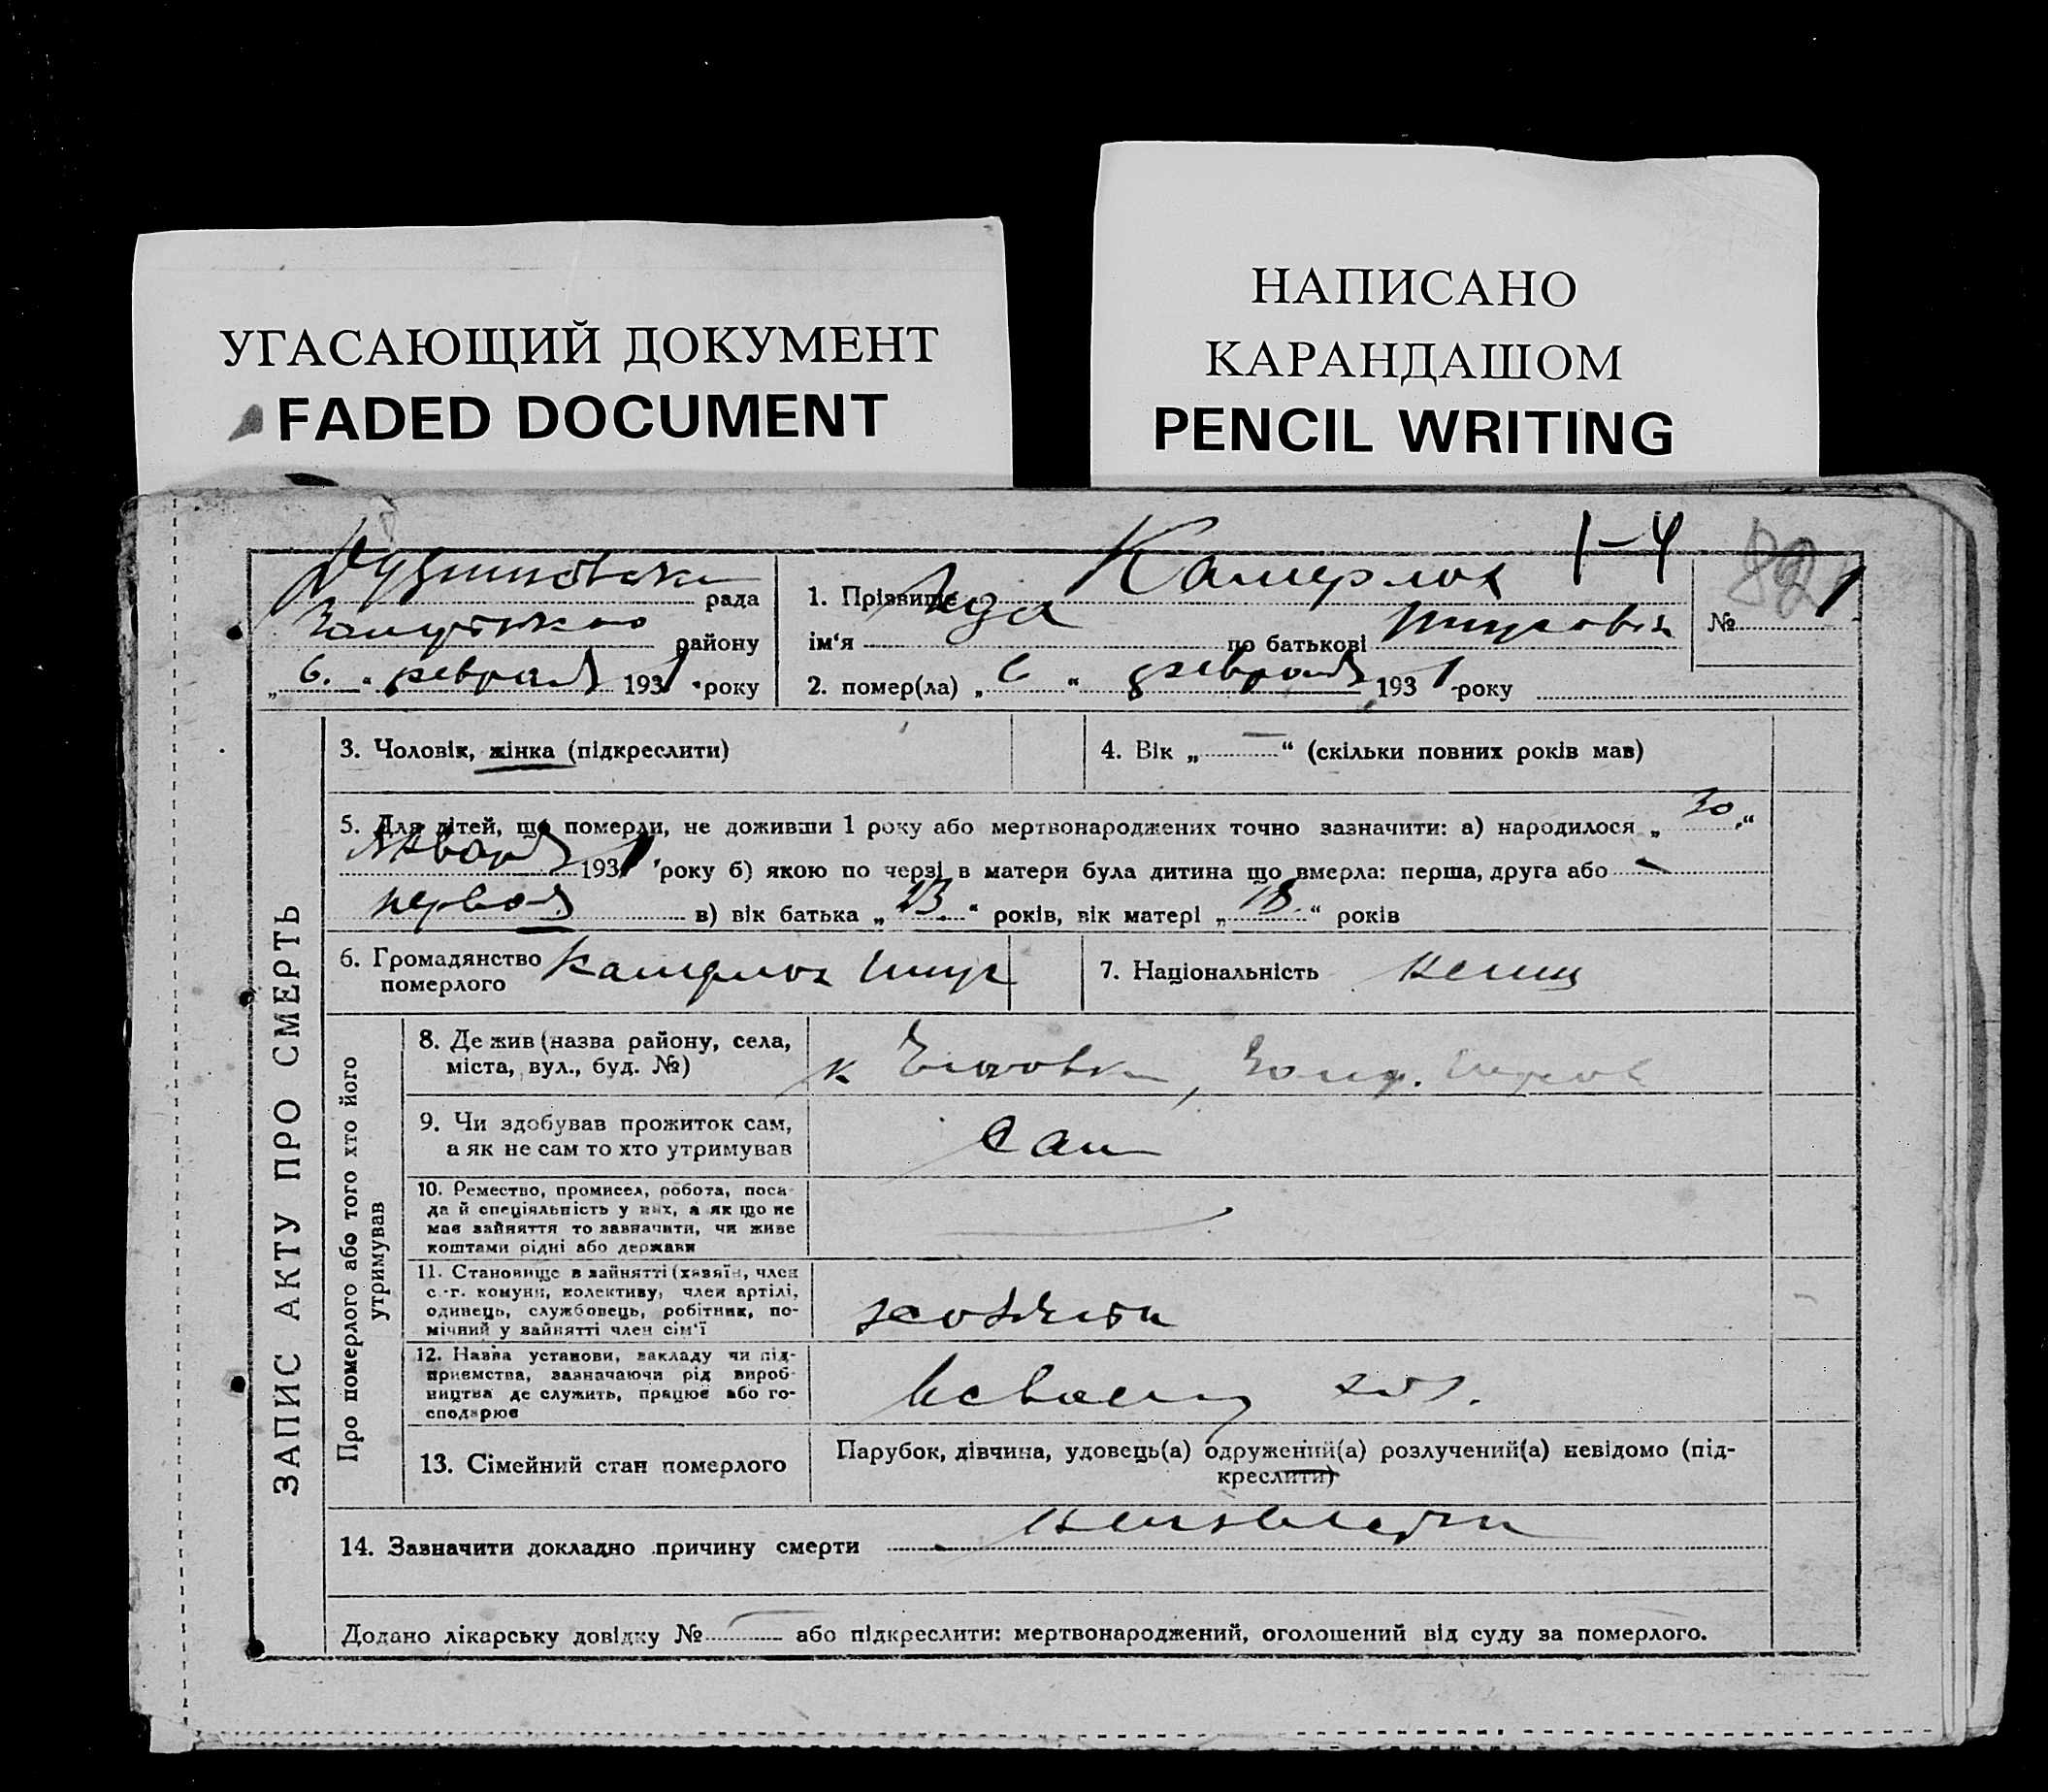 УГАСАЮЩИЙ ДОКУМЕНТ
FADED DOCUMENT
НАПИСАНО
КАРАНДАШОМ
PENCIL WRITING
1-4
рада
району
„ 6. “ февраля 1931 року
1. Прізвище
ім‘я Ида по батькові
№ 1
2. помер(ла) „ 6 “ февраля 1931 року
ЗАПИС АКТУ ПРО СМЕРТЬ
3. Чоловік, жінка (підкреслити)
4. Вік „ — “ (скільки повних років мав)
5. Для дітей, що померли, не доживши 1 року або мертвонароджених точно зазначити: а) народилося „ 30. “
Января 1931 року б) якою по черзі в матери була дитина що вмерла: перша, друга або
первая в) вік батька „ 23 “ років, вік матері „ 18. “ років
6. Громадянство
померлого
7. Національність немец
Про померлого або того хто його
утримував
8. Де жив (назва району, села,
міста, вул., буд. №)
9. Чи здобував прожиток сам,
а як не сам то хто утримував
сам
10. Ремество, промисел, робота, поса-
да й спеціяльність у них, а як що не
має зайняття то зазначити, чи живе
коштами рідні або держави
11. Становище в зайнятті (хазяїн, член
с.-г. комуни, колективу, член артілі,
одинець, службовець, робітник, по-
мічний у зайнятті член сім‘ї
12. Назва установи, закладу чи під-
приємства, зазначаючи рід вироб-
ництва де служить, працює або го-
сподарює
13. Сімейний стан померлого
Парубок, дівчина, удовець(а) одружений(а) розлучений(а) невідомо (під-
креслити)
14. Зазначити докладно причину смерти
Додано лікарську довідку № або підкреслити: мертвонароджений, оголошений від суду за померлого.